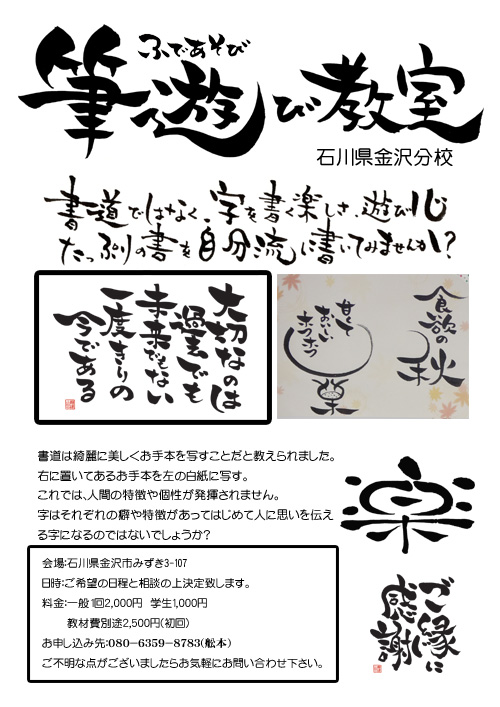 ふであそび
筆遊び教室
石川県金沢分校
書道ではなく、字を書く楽しさ、遊び心
たっぷりの書を自分流に書いてみませんか!?
大切なのは
過去でも
未来でもない
一度きりの
今である
食欲の
秋
甘くて
おいしい
ホクホク
栗
書道は綺麗に美しくお手本を写すことだと教えられました。
右に置いてあるお手本を左の白紙に写す。
これでは、人間の特徴や個性が発揮されません。
字はそれぞれの癖や特徴があってはじめて人に思いを伝え
る字になるのではないでしょうか?
楽
会場:石川県金沢市みずき3-107
日時:ご希望の日程と相談の上決定致します。
料金:一般1回2,000円 学生1,000円
教材費別途2,500円(初回)
お申し込み先:080-6359-8783(舩本)
ご不明な点がございましたらお気軽にお問い合わせ下さい。
ご縁に
感謝